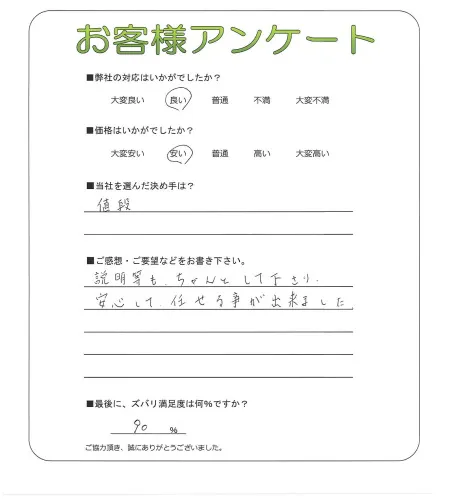 お客様アンケート
■弊社の対応はいかがでしたか？
大変良い 良い 普通 不満 大変不満
■価格はいかがでしたか？
大変安い 安い 普通 高い 大変高い
■当社を選んだ決め手は？
値段
■ご感想・ご要望などをお書き下さい。
説明等も、ちゃんとして下さり、
安心して、任せる事が出来ました
■最後に、ズバリ満足度は何%ですか？
90 %
ご協力頂き、誠にありがとうございました。